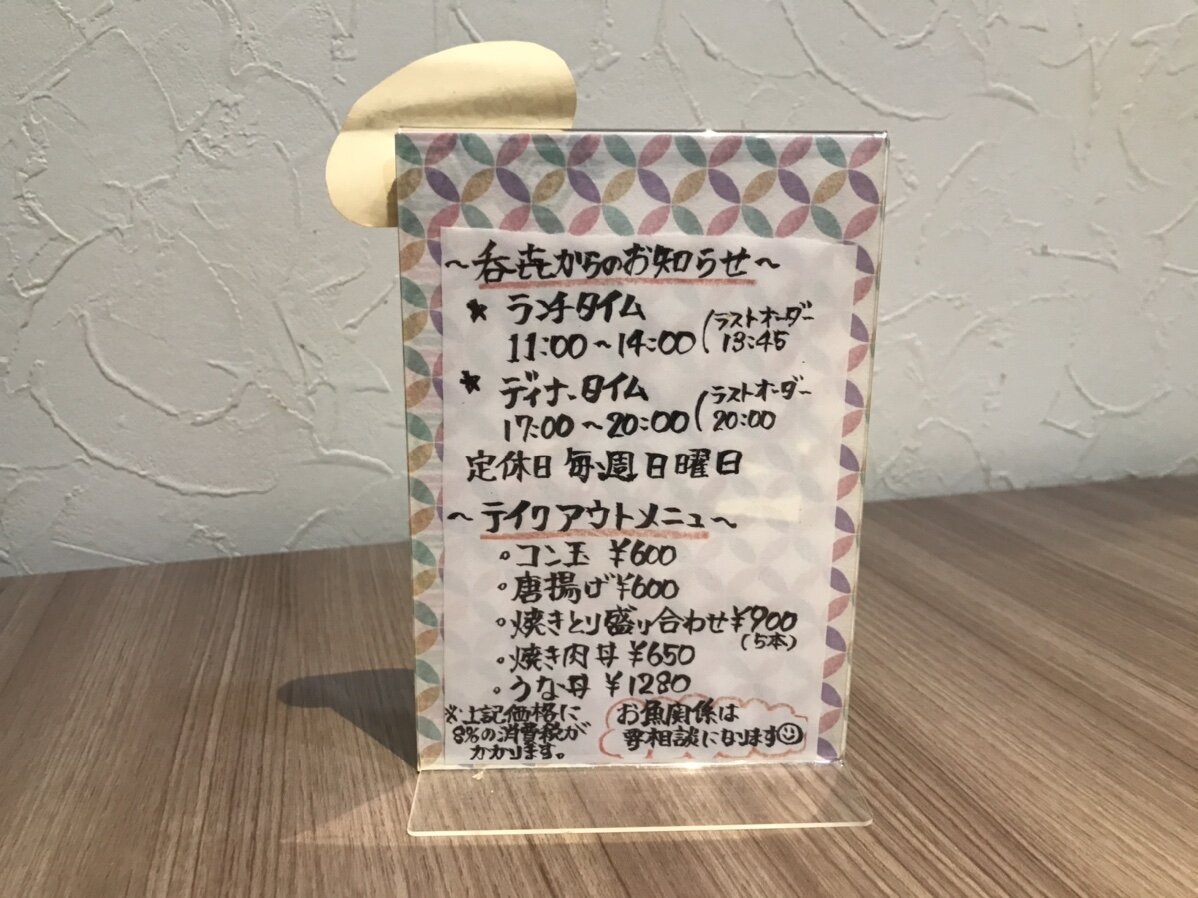 〜呑㐂からのお知らせ〜
★ ランチタイム
11:00〜14:00(ラストオーダー
13:45
★ ディナータイム
17:00〜20:00(ラストオーダー
20:00
定休日 毎週日曜日
〜テイクアウトメニュー〜
。コン玉 ¥600
。唐揚げ ¥600
。焼きとり盛り合わせ ¥900
(5本)
。焼き肉丼 ¥650
。うな丼 ¥1280
※上記価格に
8%の消費税が
かかります。
お魚関係は
要相談になります☺